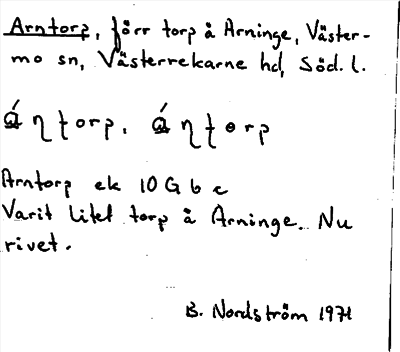 Arntorp, förr torp å Arninge, Väster-
mo sn, Västerrekarne hd, Söd. l.
áɳʈorp. áɳʈɵrp
Arntorp ek 10 G b c
Varit litet torp å Arninge. Nu
rivet.
B. Nordström 1971